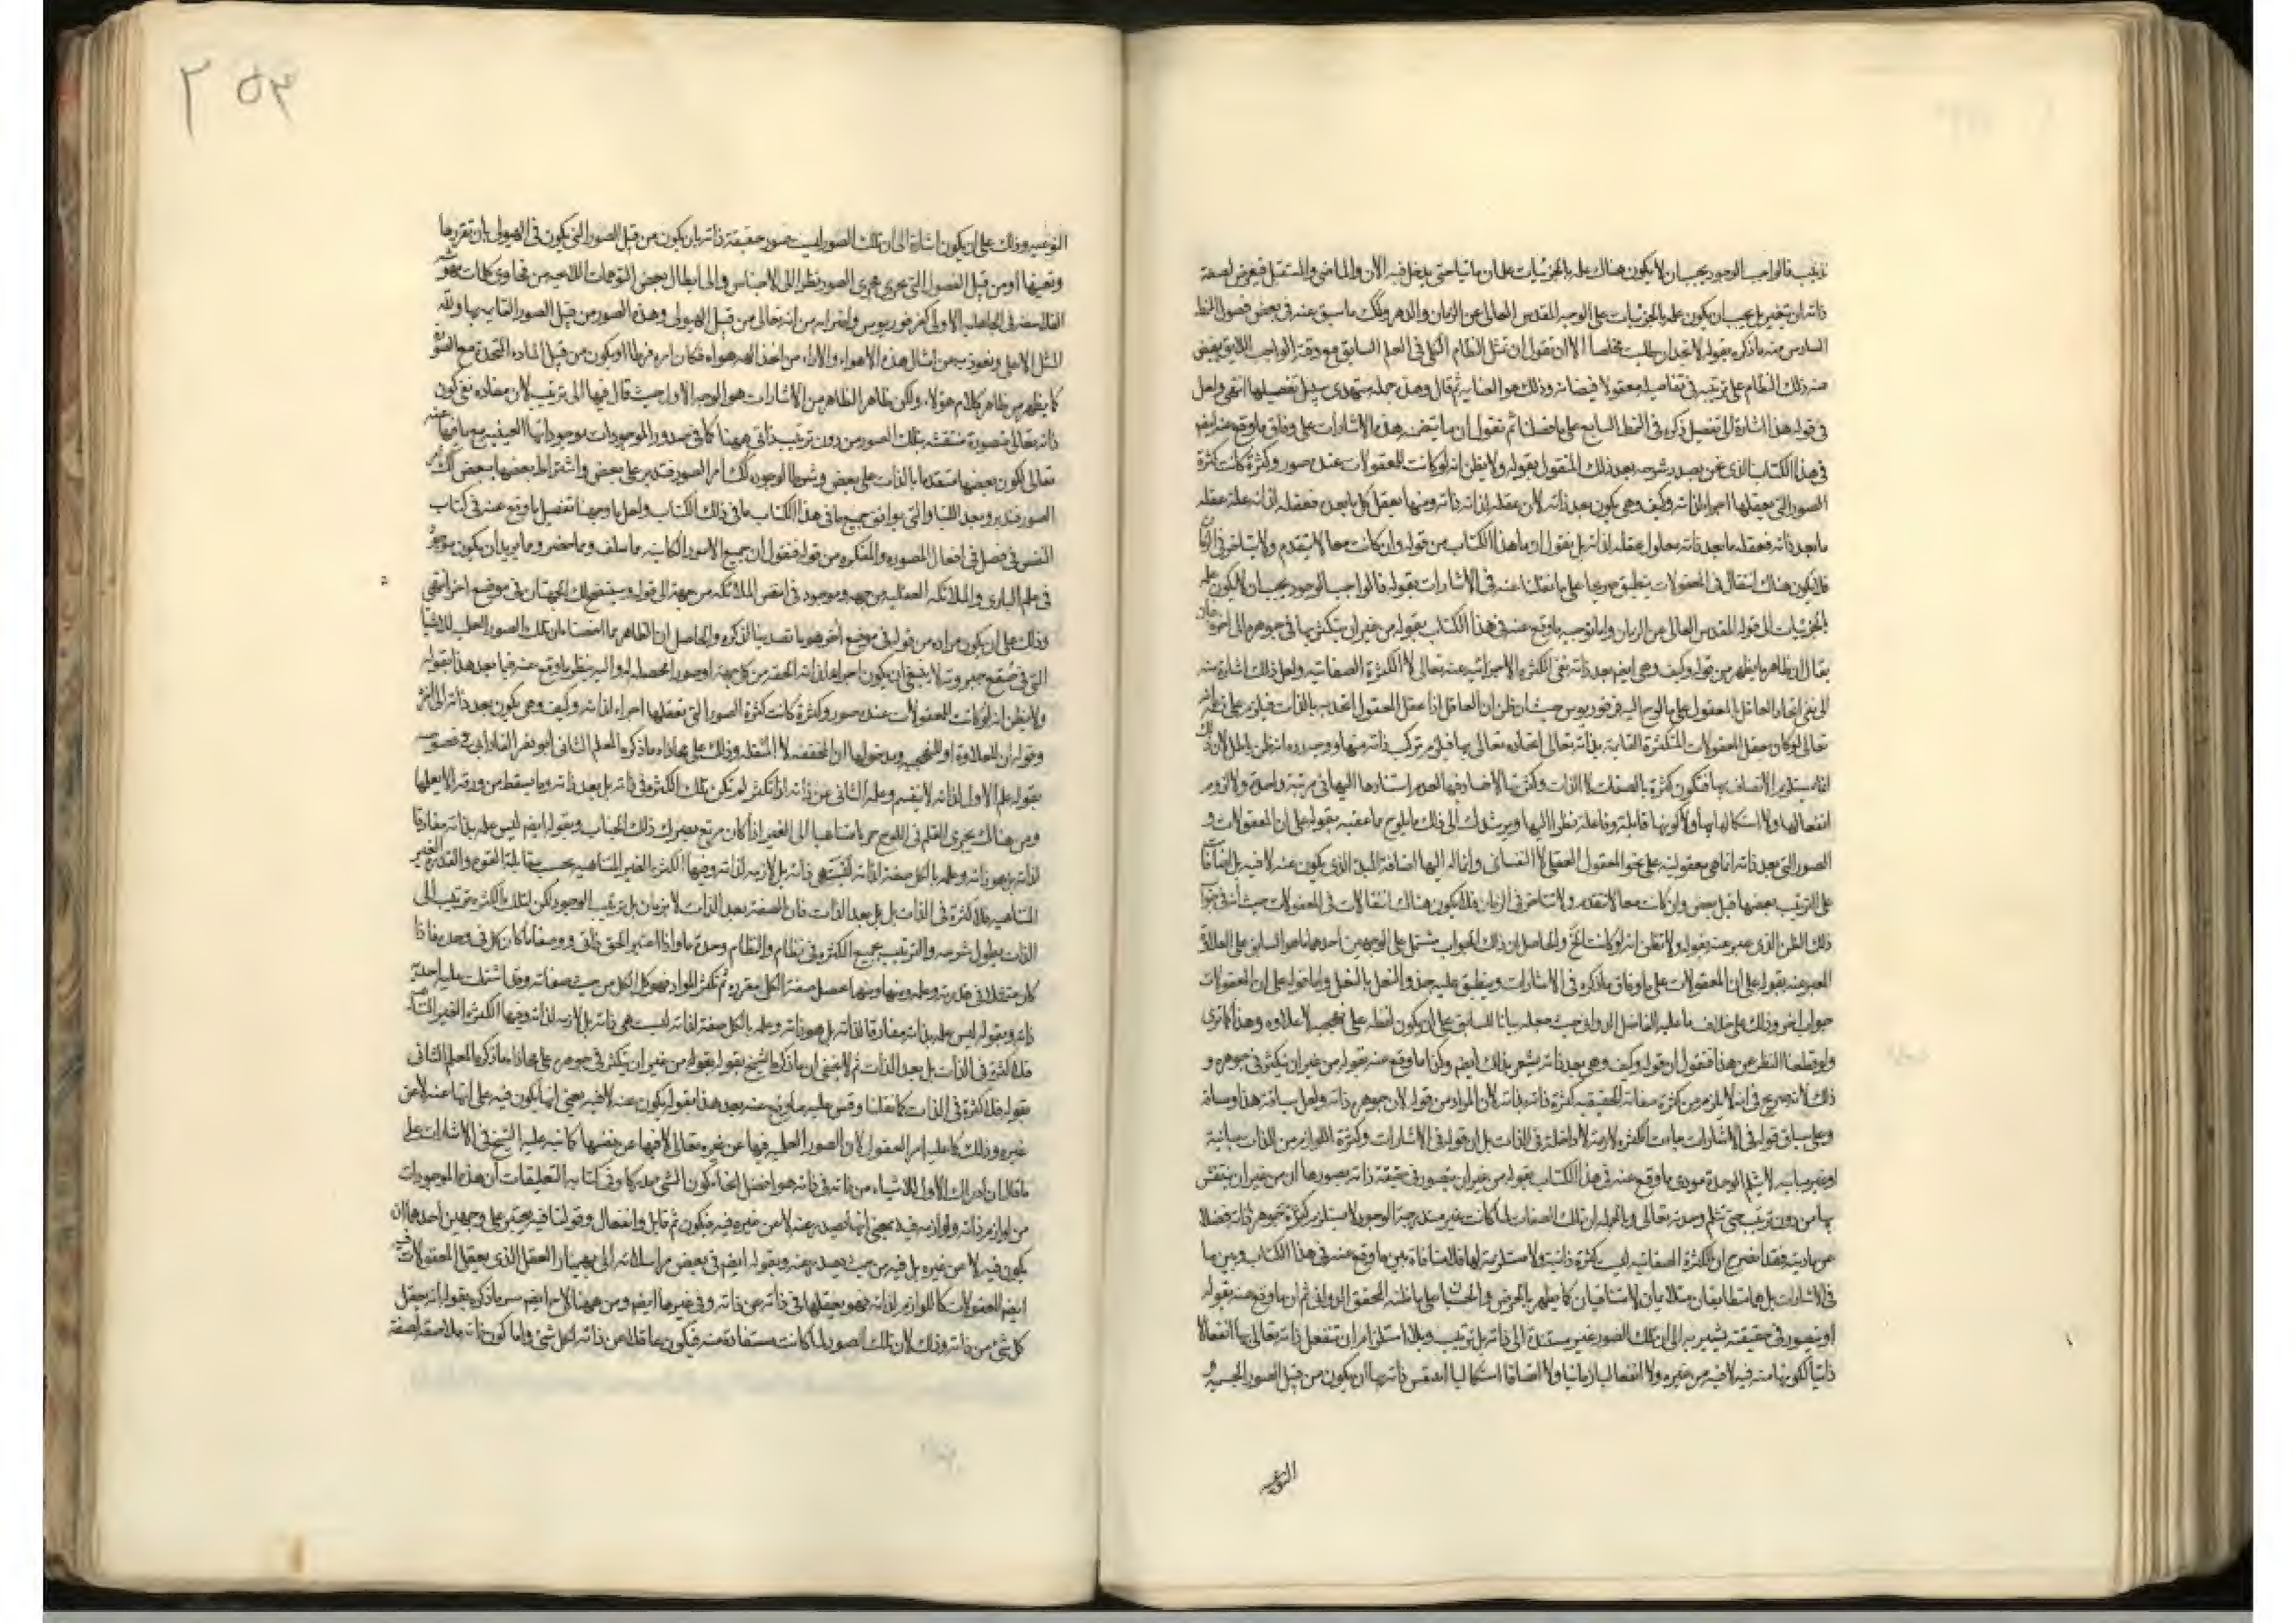 فالواجب الوجود يجب ان لا يكون هناك علمه بالجزئيات علما زمانيا حتى يدخل فيه الآن والماضى والمستقبل فيعرض لصفة
ذاته ان تتغير بل يجب ان يكون علمه بالجزئيات على الوجه المقدس العالى عن الزمان والدهر وكذلك ما سبق عنه فى بعض فصول النمط
السادس منه ما ذكره بقوله لا تجد ان طلبت مخلصا الا ان تقول ان تمثل النظام الكلى فى العلم السابق مع وقته الواجب اللايق يفيض
منه ذلك النظام على ترتيبه فى تفاصيله معقولا فيضانه وذلك هو العناية ثم قال وهذه جملة ستهدى سبيل تفصيلها انتهى ولعل
فى قوله هذا اشارة الى تفصيل ذكره فى النمط السابع على ما فصلنا ثم نقول ان ما تضمنه هذه الاشارات على وفاق ما وقع عنه ايضا
فى هذا الكتاب الذى نحن بصدد شرحه بعد ذلك المنقول بقوله ولا يظن انه لو كانت للمعقولات عنده صور وكثرة كانت كثرة
الصور التى يعقلها اجزاء لذاته وكيف وهى يكون بعد ذاته لان عقله لذاته ذاته ومنها يعقل كل ما بعده فعقله لذاته علة عقله
ما بعد ذاته فعقله ما بعد ذاته معلول عقله لذاته بل نقول ان ما هذا الكتاب من قوله وان كانت معا لا يتقدم ولا يتاخر فى الزمان
فلا يكون هناك انتقال فى المعقولات ينطبق على ما نقلنا عنه فى الاشارات بقوله فالواجب الوجود يجب ان لا يكون علمه
بالجزئيات الى قوله المقدس العالى عن الزمان واما توجيه ما وقع عنه فى هذا الكتاب بقوله من غير ان يتكثر بها فى جوهره الى اخره
يقال ان ظاهر ما يظهر من قوله وكيف وهى ايضا بعد ذاته نفى الكثرة الاجزائية عنه تعالى لا الكثرة الصفاتية ولعل ذلك اشارة منه
الى نفى اتحاد العاقل بالمعقول على ما الوح اليه فرفوريوس حيث ان ظن ان العاقل اذا عقل المعقول اتحد به بالذات فيلزم على ظنه
تعالى لو كان عقل المعقولات المتكثرة القايمة بذاته تعالى اتحاده تعالى بها فيلزم تركب ذاته منها
انما يستلزم الاتصاف بها فتكون كثرة بالصفات لا الذات
انفعالها ولا استكمالها بها ولا كونها قابلة وفاعلة نظرا اليها ويرشدك الى ذلك ما يلوح ما عقبه بقوله على ان المعقولات و
الصور التى بعد ذاته انما هى معقولية على نحو المعقول العقلى لا النفسانى وانما له اليها اضافة المبدأ الذى يكون عنه لا فيه بل اضافات
على الترتيب بعضها قبل بعض وان كانت معا لا تتقدم ولا تتاخر فى الزمان فلا يكون هناك انتقالات فى المعقولات
ذلك الظن الذى عبر عنه بقوله ولا تظن انه لو كانت الخ والحاصل ان ذلك الجواب مشتمل على الوجهين احدهما ما هو السابق على العلاوة
المعبر عنه بقوله على ان المعقولات على ما وفاق ما ذكره فى الاشارات وينطبق عليه حذو النعل بالنعل واما قوله على ان المعقولات
جواب اخر وذلك على خلاف ما عليه الفاضل الدوانى حيث جعله بيانا للسابق على ان يكون لفظة على نهجية لا علاوة وهذا كما ترى
ولو قطعنا النظر عن هذا فنقول ان قوله وكيف وهى بعد ذاته يشعر بذلك ايضا وكذا ما وقع منه بقوله من غير ان يتكثر فى جوهره و
ذلك لانه صريح فى انه لا يلزم من كثرة صفاته الحقيقية كثرة ذاته بذاته لان المراد من قوله لان جوهره ذاته
وعلى سياق قوله فى الاشارات جاءت الكثرة لازمة لا داخلة فى الذات بل ان قوله فى الاشارات وكثرة اللوازم من الذات مباينة
او غير مباينة لا يثلم الوحدة مودى ما وقع عنه فى هذا الكتاب بقوله من غير ان يتصور فى حقيقة ذاته بصورها اى من غير ان ينتقش
بها من دون ترتيب حتى تثلم وحدته تعالى وبالجملة ان تلك الصفات لما كانت غير مندرجة الوجود لا يستلزم كثرة بجوهر ذاته فضلا
ان الكثرة الصفاتية ليست كثرة ذاتية ولا مستلزمة لها فلا منافاة بين ما وقع عنه فى هذا الكتاب وبين ما
فى الاشارات بل هما متطابقان متلايمان لا متنافيان كما يظهر على ما ظنه المحقق الدوانى ثم ان ما وقع منه بقوله
او يتصور فى حقيقته يشير به الى ان تلك الصور غير مستندة الى ذاته بل ترتيب وبلا استلزام ان تنفعل ذاته تعالى بها انفعالا
ذاتيا لكونها منه فيه لا فيه من غيره ولا انفعاليا زمانيا ولا اتصافا استكماليا يكون من قبل الصور الجسمية
النوعيه
٢٥٣
النوعيه وذلك على ان يكون اشارة الى ان تلك الصور ليست صور حقيقة ذاته بان يكون من قبل الصور التى يكون فى الهيولى بان تقررها
وتعينها او من قبل الفصول التى يجرى مجرى الصور نظرا الى الاجناس والى ابطال بعض التوهمات اللايحة من فحاوى كلمات
الفلاسفة فى الجاهلية الاولى كفرفوريوس واضرابه من انه تعالى من قبل الهيولى وهذه الصور من قبل الصور القايمة بها ولله
المثل الاعلى ونعوذ به من امثال هذه الاهواء والاراء من اتخذ الهه هواه فكان امره فرطا او يكون من قبل المادة المتحدة مع الصور
كما يظهر من ظاهر كلام هؤلاء ولكن ظاهر الظاهر من الاشارات هو الوجه الاول حيث قال فيها الى ترتيب لان مفاده نفى كون
ذاته تعالى متصورة منتقشة بتلك الصور من دون ترتيب ذاتى هيهنا كما فى صدور الموجودات بوجوداتها العينية
تعالى لكون بعضها متقدما بالذات على بعض وشرطا لوجوده كذلك امر الصور فتدبر على بعض واشتراط بعضها ببعض
الصور فتدبر وبعد اللتيا والتى يوافق جميع ما فى هذا الكتاب ما فى ذلك الكتاب ولعل ما وجهنا تفصيل ما وقع عنه فى كتاب
النفس فى فصل فى افعال المصورة والمفكرة من قوله فنقول ان جميع الامور الكاينة ما سلف وما حضر وما يريد ان يكون موجود
فى علم البارى والملائكة العقلية من جهة وموجود فى انفس الملائكة من جهة الى قوله وسيتضح لك الجهتان فى موضع اخر انتهى
وذلك على ان يكون مراده من قوله فى موضع اخر هو ما تصدينا لذكره والحاصل ان الظاهر مما اقتصصناه ان تلك الصور العلمية للاشياء
التى فى صقع جبروته لا ينبغى ان يكون اجزاء لذاته الحقة من كل جهة او صورا محصلة له واليه ينظر ما وقع عنه فيما بعد هذا بقوله
ولا يظن انه لو كانت للمعقولات عنده صور وكثرة كانت كثرة الصور التى يعقلها اجزاء لذاته وكيف وهى يكون بعد ذاته الى اخره
وذلك على محاذاة ما ذكره المعلم الثانى ابو نصر الفارابى فى فصوصه
بقوله علم الاول لذاته لا ينقسم وعلمه الثانى عن ذاته اذا تكثر لم تكن تلك الكثرة فى ذاته بل بعد ذاته وما يسقط من ورقة الا يعلمها
ومن هنالك يجرى القلم فى اللوح جريا متناهيا الى القيمة اذا كان مرتع بصرك ذلك الجناب وبقوله ايضا ليس علمه بذاته مفارقا
لذاته بل هو ذاته وعلمه بالكل صفة لذاته ليست هى ذاته بل لازمة لذاته وفيها الكثرة الغير المتناهية بحسب مقابلة القوة والقدرة الغير
المتناهية فلا كثرة فى الذات بل بعد الذات فان الصفة بعد الذات لا بزمان بل بترتيب الوجود لكن لتلك الكثرة ترتيب الى
الذات يطول شرحه والترتيب يجمع الكثرة فى نظام والنظام وحدة ما واذا اعتبر الحق ذاتا وصفاتا كان كل فى وحدة فاذا
كان كل متمثلا فى قدرته وعلمه ومنهما يحصل صفة الكل مقررة ثم تكثر المواد فهو كل الكل من حيث صفاته وقد اشتملت عليه احدية
ذاته وبقوله ليس علمه بذاته مفارقا لذاته بل هو ذاته وعلمه بالكل صفة لذاته ليست هى ذاته بل لازمة لذاته وفيها الكثرة الغير المتناهية
فلا كثرة فى الذات بل بعد الذات ثم لا يخفى ان ما ذكره الشيخ بقوله من غير ان يتكثر فى جوهره على محاذاة ما ذكره المعلم الثانى
بقوله فلا كثرة فى الذات كما نقلنا وقس عليه ما وقع عنه بعد هذا بقوله يكون عنه لا فيه يعنى انها يكون فيه على انها عنه لا عن
غيره وذلك كما عليه امر المعقول لان الصور العلمية فيها عن غيره تعالى لا فيها عن نفسها كما نبه عليه الشيخ فى الاشارات على
ما قال ان ادراك الاول للاشياء من ذاته فى ذاته هو افضل انحاء كون الشىء مدركا وفى كتابه التعليقات ان هذه الموجودات
من لوازم ذاته ولوازمه فيه بمعنى انها تصدر عنه لا من غيره فيه فيكون ثم قابل وانفعال وقولنا فيه يعتبر على وجهين احدهما ان
يكون فيه لا من غيره بل فيه من حيث يصدر عنه وبقوله ايضا فى بعض مراسلاته الى بهمنيار العقل الذى يعقل المعقولات
ايضا المعقولات كاللوازم لذاته فهو يعقلها فى ذاته عن ذاته وفى غيرها ايضا ومن هيهنا لاح ايضا سر ما ذكره بقوله انه يعقل
كل شىء من ذاته وذلك لان تلك الصور لما كانت مستفادة منه فيكون عاقلا من ذاته لكل شىء واما كون ذاته ملاصقة لصفة